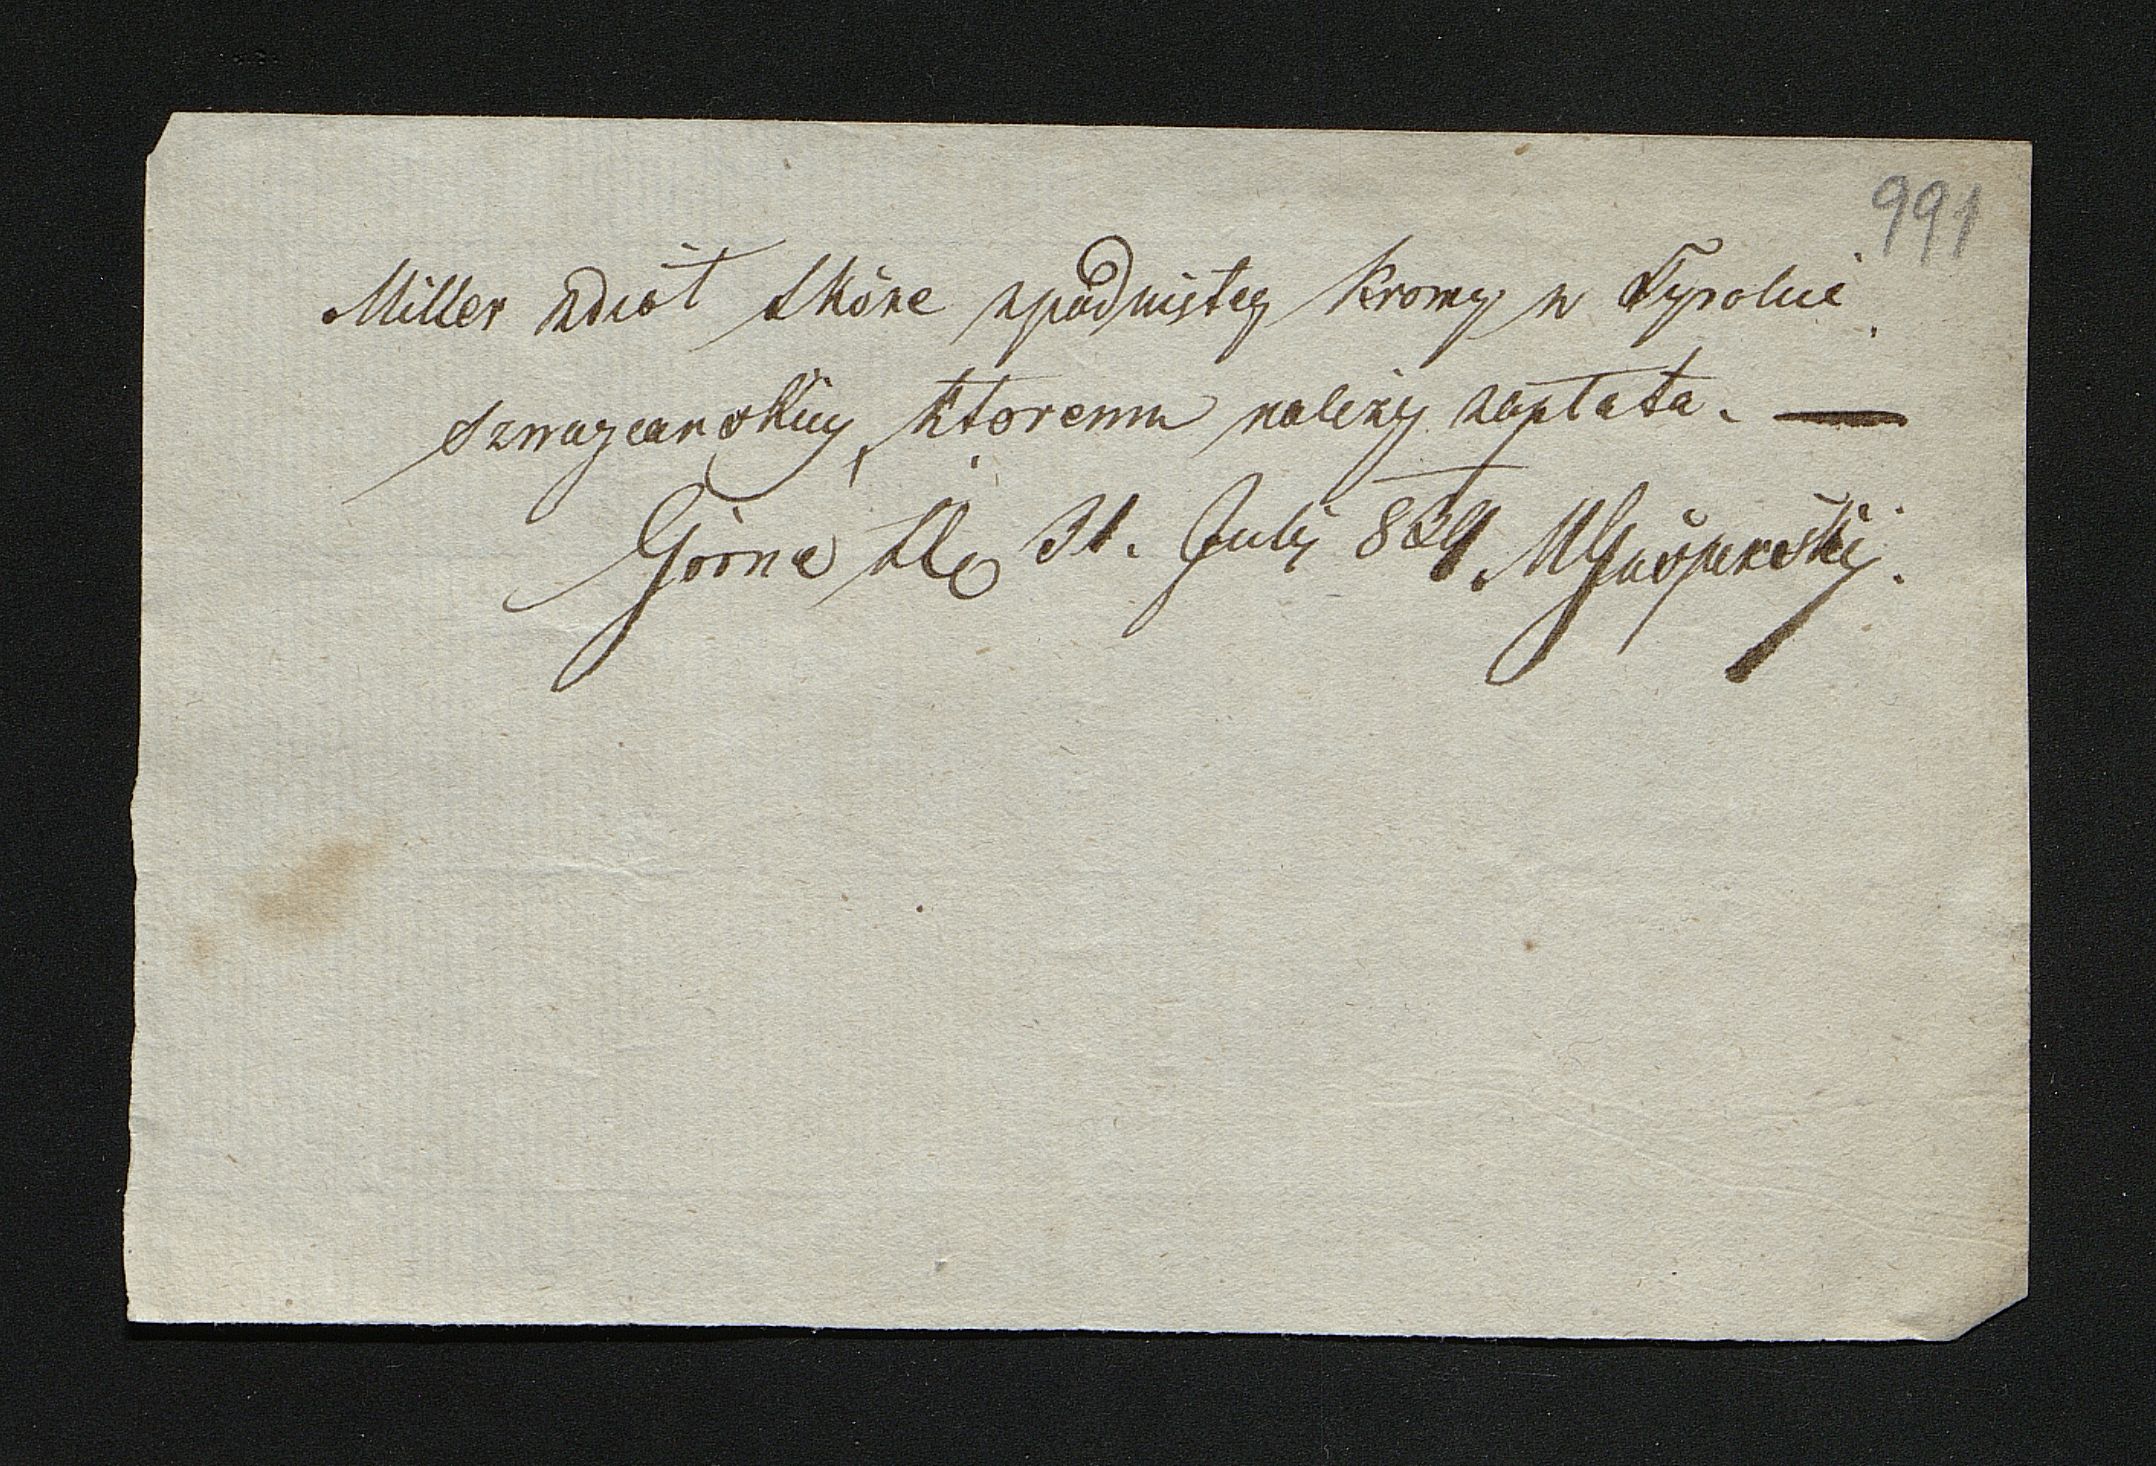 991
Miller zdiół skóre zpadniętey krowy w Tyrolii
szwaycarskiey, ktoremu należy zapłata. —
Górna d. 31. Julij 829. MGasperskij.